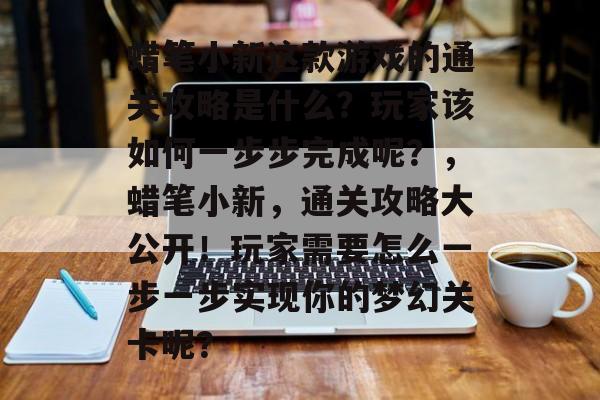 蜡笔小新这款游戏的通
关攻略是什么？玩家该
如何一步步完成呢？，
蜡笔小新，通关攻略大
公开！玩家需要怎么一
步一步实现你的梦幻关
卡呢？